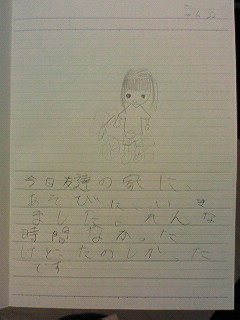 今日友達の家に、
あそびにいき
ました。れんな
時間なかった
けどたのしかった
です